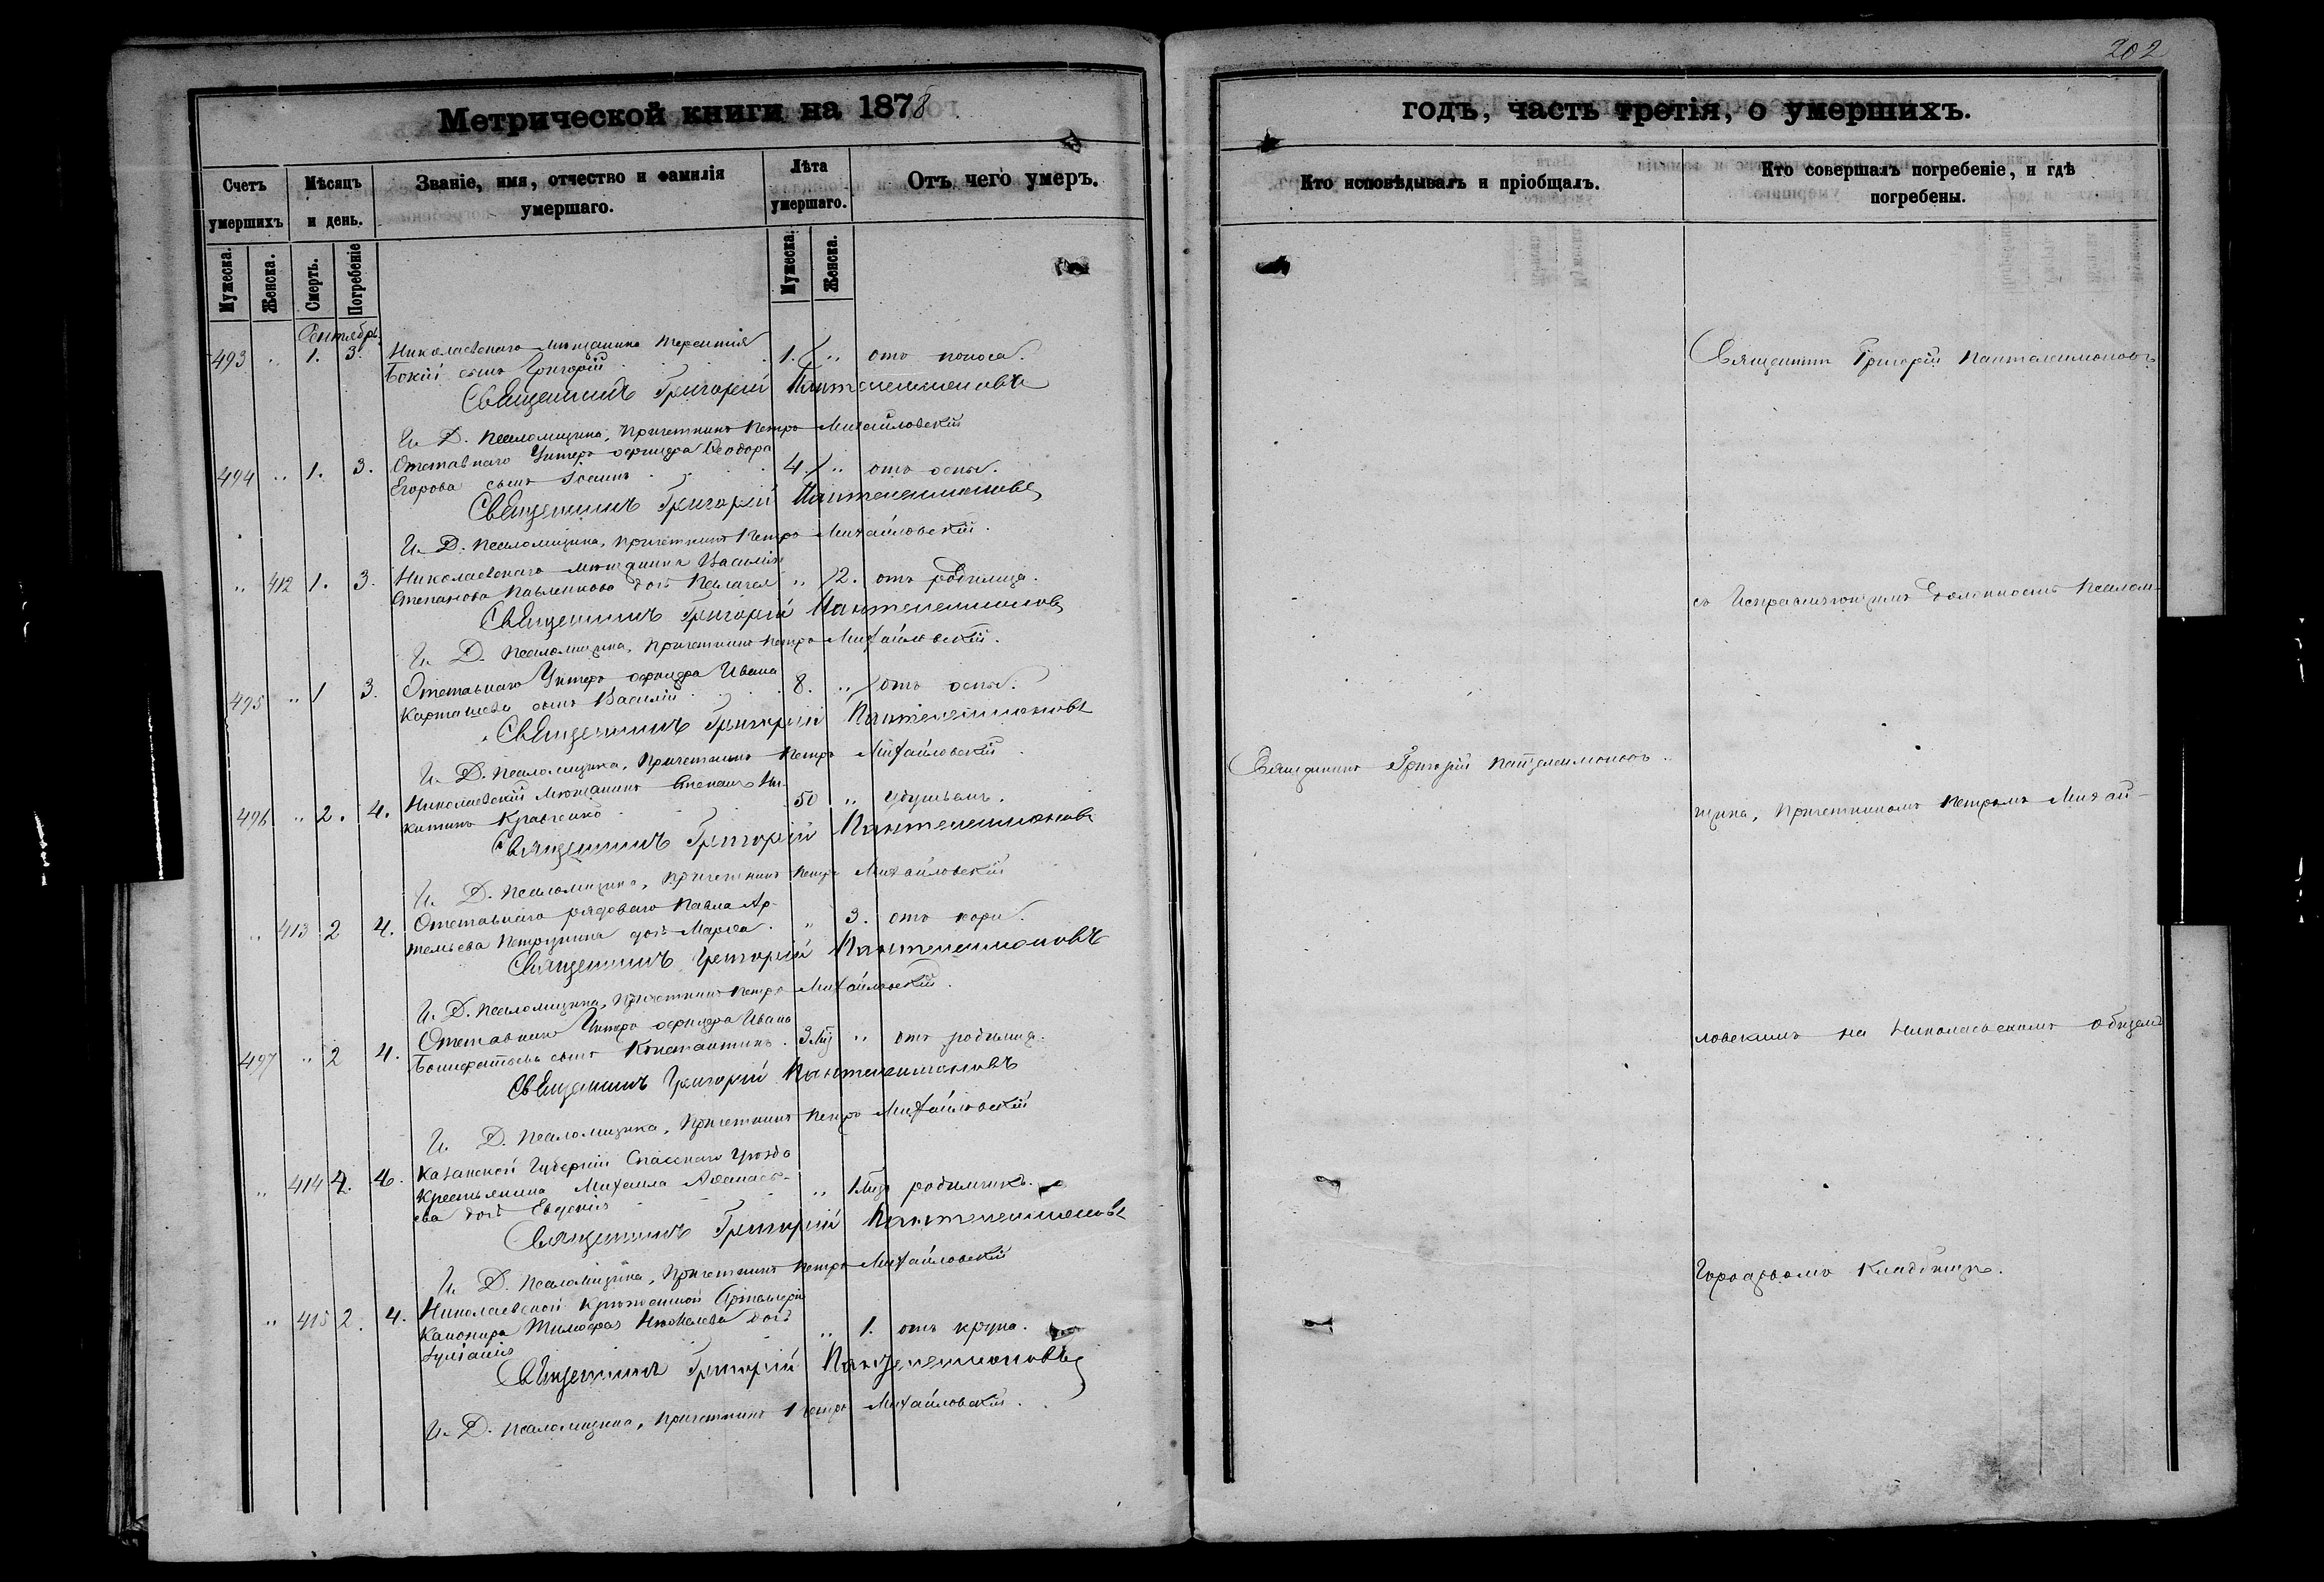 202
Метрической книги на 1878
годъ, часть третія, о умершихъ.
Счетъ умершихъ
Мѣсяцъ и день.
Званіе, имя, отчество и фамилія умершаго.
Лѣта умершаго.
Отъ чего умеръ.
Кто исповѣдывалъ и пріобщалъ.
Кто совершалъ погребеніе, и гдѣ погребены.
Мужеска.
Женска.
Смерть.
Погребеніе
Мужеска.
Женска.
Сентябрь
493 " 1. 3. Николаевскаго мѣщанина Терентія
сынъ Григорій 1. " отъ поноса.
Священникъ Григорій Пантелеимоновъ
И. Д. Псаломщика, Причетникъ Петръ Михайловскій
494 " 1. 3. Отставнаго Унтеръ офицера Ѳеодора
Егорова сынъ Іоаннъ 4. " отъ оспы.
Священникъ Григорій Пантелеимоновъ
И. Д. Псаломщика, Причетникъ Петръ Михайловскій.
" 412 1. 3. Николаевскаго мѣщанина Василія
Степанова Павленкова дочь Пелагея " 2. отъ родимца.
Священникъ Григорій Пантелеимоновъ
И. Д. Псаломщика, Причетникъ Петръ Михайловскій.
495 " 1 3. Отставнаго Унтеръ офицера Ивана
Карташева сынъ Василій 8. " отъ оспы.
Священникъ Григорій Пантелеимоновъ
И. Д. Псаломщика, Причетникъ Петръ Михайловскій
496 " 2. 4. Николаевскій Мѣщанинъ Степанъ Ни-
китинъ Кравченко 50 " удушьемъ.
Священникъ Григорій Пантелеимоновъ
И. Д. Псаломщика, Причетникъ Петръ Михайловскій
" 413 2 4. Отставнаго рядоваго Павла Ар-
темьева дочь Марѳа. " 3. отъ кори.
Священникъ Григорій Пантелеимоновъ
И. Д. Псаломщика, Причетникъ Петръ Михайловскій.
497 " 2 4. Отставнаго Унтеръ офицера Ивана
сынъ Константинъ. 3 " отъ родимца.
Священникъ Григорій Пантелеимоновъ
И. Д. Псаломщика, Причетникъ Петръ Михайловскій
" 414 2. 4. Казанской Губерніи Спасскаго Уѣзда
Крестьянина Михаила Аѳанась-
ева дочь Евдокія " 1 родимчикъ.
Священникъ Григорій Пантелеимоновъ
И. Д. Псаломщика, Причетникъ Петръ Михайловскій
" 415 2. 4. Николаевской Крѣпостной Артиллеріи
Канонира дочь
" 1. отъ крупа.
Священникъ Григорій Пантелеимоновъ
И. Д. Псаломщика, Причетникъ Петръ Михайловскій.
Священникъ Григорій Пантелеимоновъ.
Священникъ Григорій Пантелеимоновъ
съ Исправляющимъ должность Псалом-
щика, Причетникомъ Петромъ Михай-
ловскимъ на Николаевскомъ общемъ
Городскомъ Кладбищѣ.